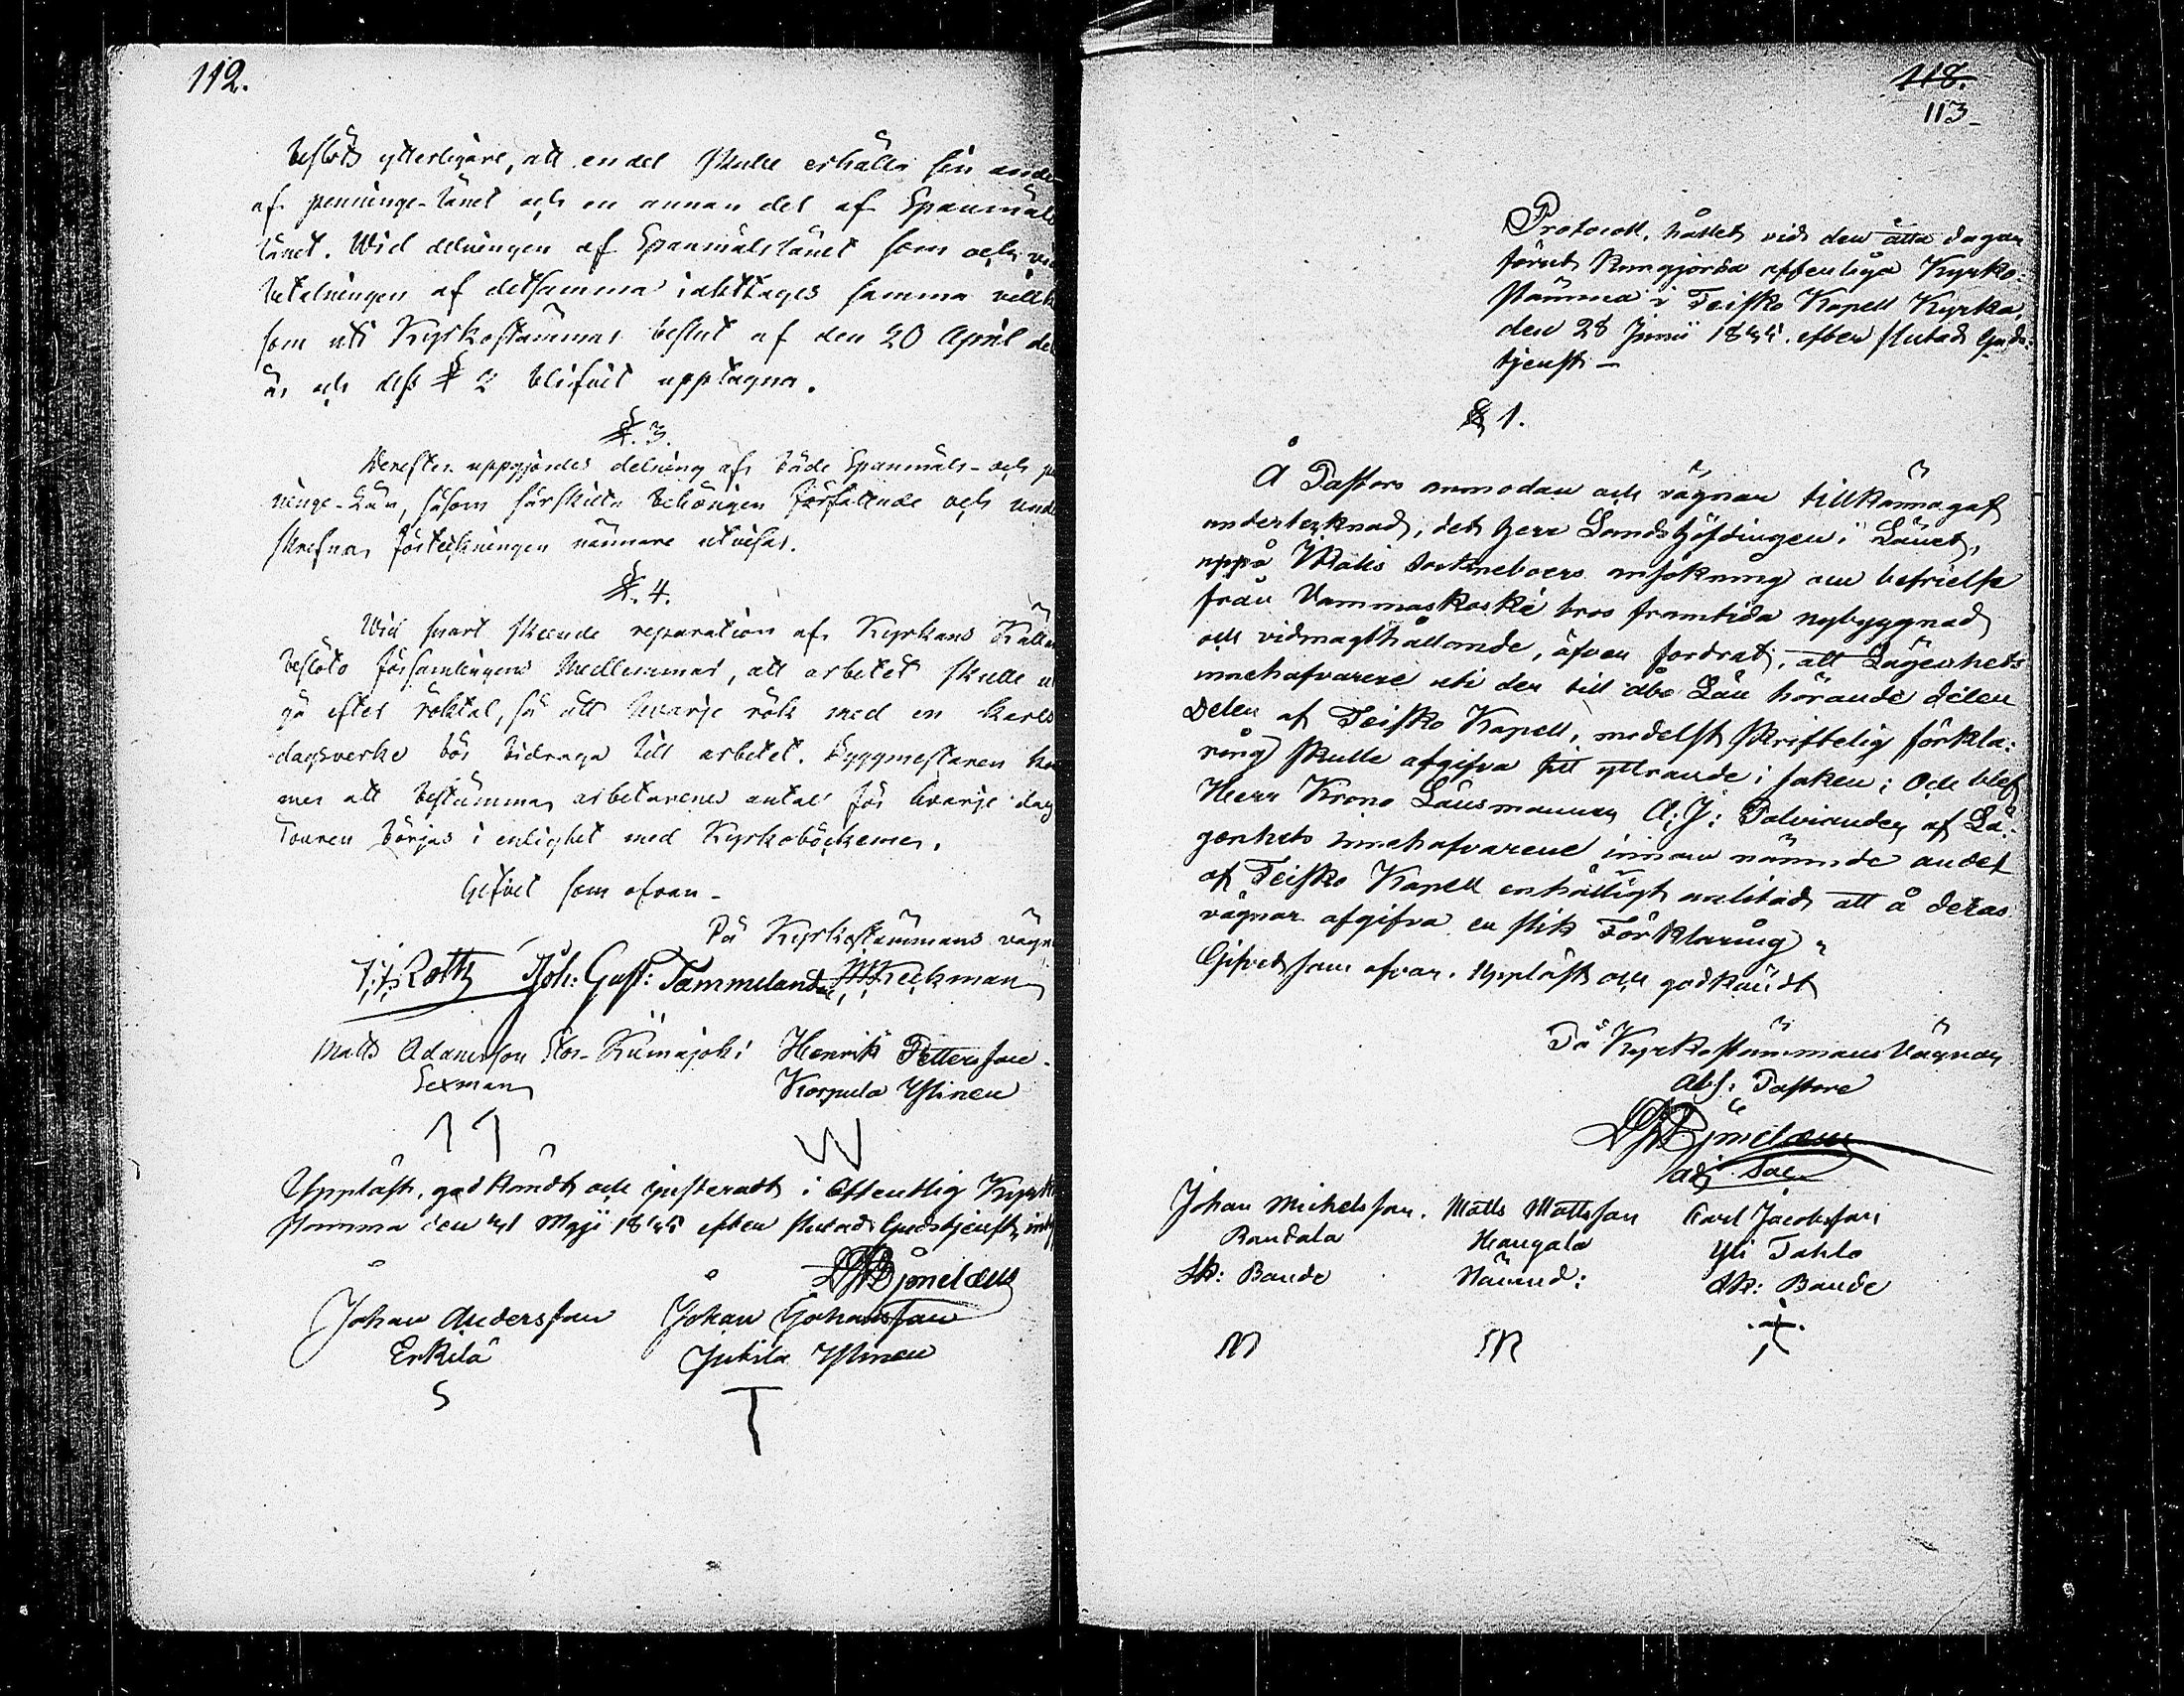 112.
beslöts ytterligare, att en del skulle erhålla sin ande
af penninge-lånet och en annan del af Spanmåls
lånet. Wid delningen af Spanmålslånet som och
betalningen af detsamma iakttages samma
som uti Kyrkostämmas beslut af den 20 April
år och dess § 2 blifvit upptagna.
§. 3.
Derefter uppgjordes delning af både Spanmåls- och
ninge-Lån, såsom särskilta behörigen författade och und
skrefna, förteckningen närmare utvisar.
§. 4.
Wid snart skeende reparation af Kyrkans
beslöto församlingens medlemmar, att arbetet skulle
gå efter röktal, så att hvarje rök med en karls
dagsverke bör bidraga till arbetet. Byggmestaren
mer att bestämma arbetarenes antal för hvarje dag
Touren börjas i enlighet med Kyrkoböckerne.
Gifvet som ofvan -
På Kyrkostämmans vägn
Roth Joh: Gust: Tammelander Heckman
Matts Adamsson Stor-Kumajoki Henrik Pettersson
Sexman Korpula Ylinen
11 W
Uppläst, godkändt och justeradt i offentlig Kyrk
stämma den 41 Maji 1845 efter slutad Gudstjenst,
Björnelæus
Johan Andersson Johan Johansson
Erkilä Jutila Ylinen
S T
118.
113
Protocoll, hållet vid den åtta dagar
förut kungjorda offentliga Kyrko-
stämma i Teisko Kapell Kyrka,
den 28 Junii 1845. efter slutad Guds-
tjenst -
§ 1.
Å Pastors anmodan och vägnar tillkännagaf
undertecknad, det Herr Landshöfdingen i Länet,
uppå Wäkis ansökning om befrielse
från Vammaskoski bros framtida nybyggnad
och vidmagthållande, äfven fordrat, att Lägenhets
innehafvarene uti den till Åbo Län hörande delen
Delen af Teisko Kapell, medelst skriftelig förkla:
ring skulle afgifva sitt yttrande i saken; Och blef
Herr Krono Länsmannen A: J: Palviander af Lä:
genhets innehafvarene innom nämnde andel
af Teisko Kapell enhälligt anlitad att å deras
vägnar afgifva en slik Förklaring,
Gifvet som ofvan. Uppläst och godkändt
På Kyrkostämmans Vägnar
Abs: Pastore
Björnelæus
adj. Sac.
Johan Michelsson. Matts Mattsson Carl Jacobsson
Randala Haugala Yli Pahlo
Sk: Bonde Nämnd: Sk: Bonde
M M